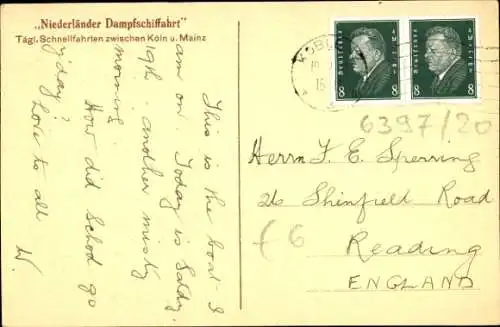 „Niederländer Dampfschiffahrt"
Tägl. Schnellfahrten zwischen Köln u. Mainz
This is the boat I
am on. Today is Satdy.
19th. another misty
morning.
How did School go
y'day?
Love to all
W.
KOBL
Deutsches Reich
8
Deutsches Reich
8
6397/20
Herrn F. E. Sperring
26 Shinfield Road
£6
Reading
ENGLAND